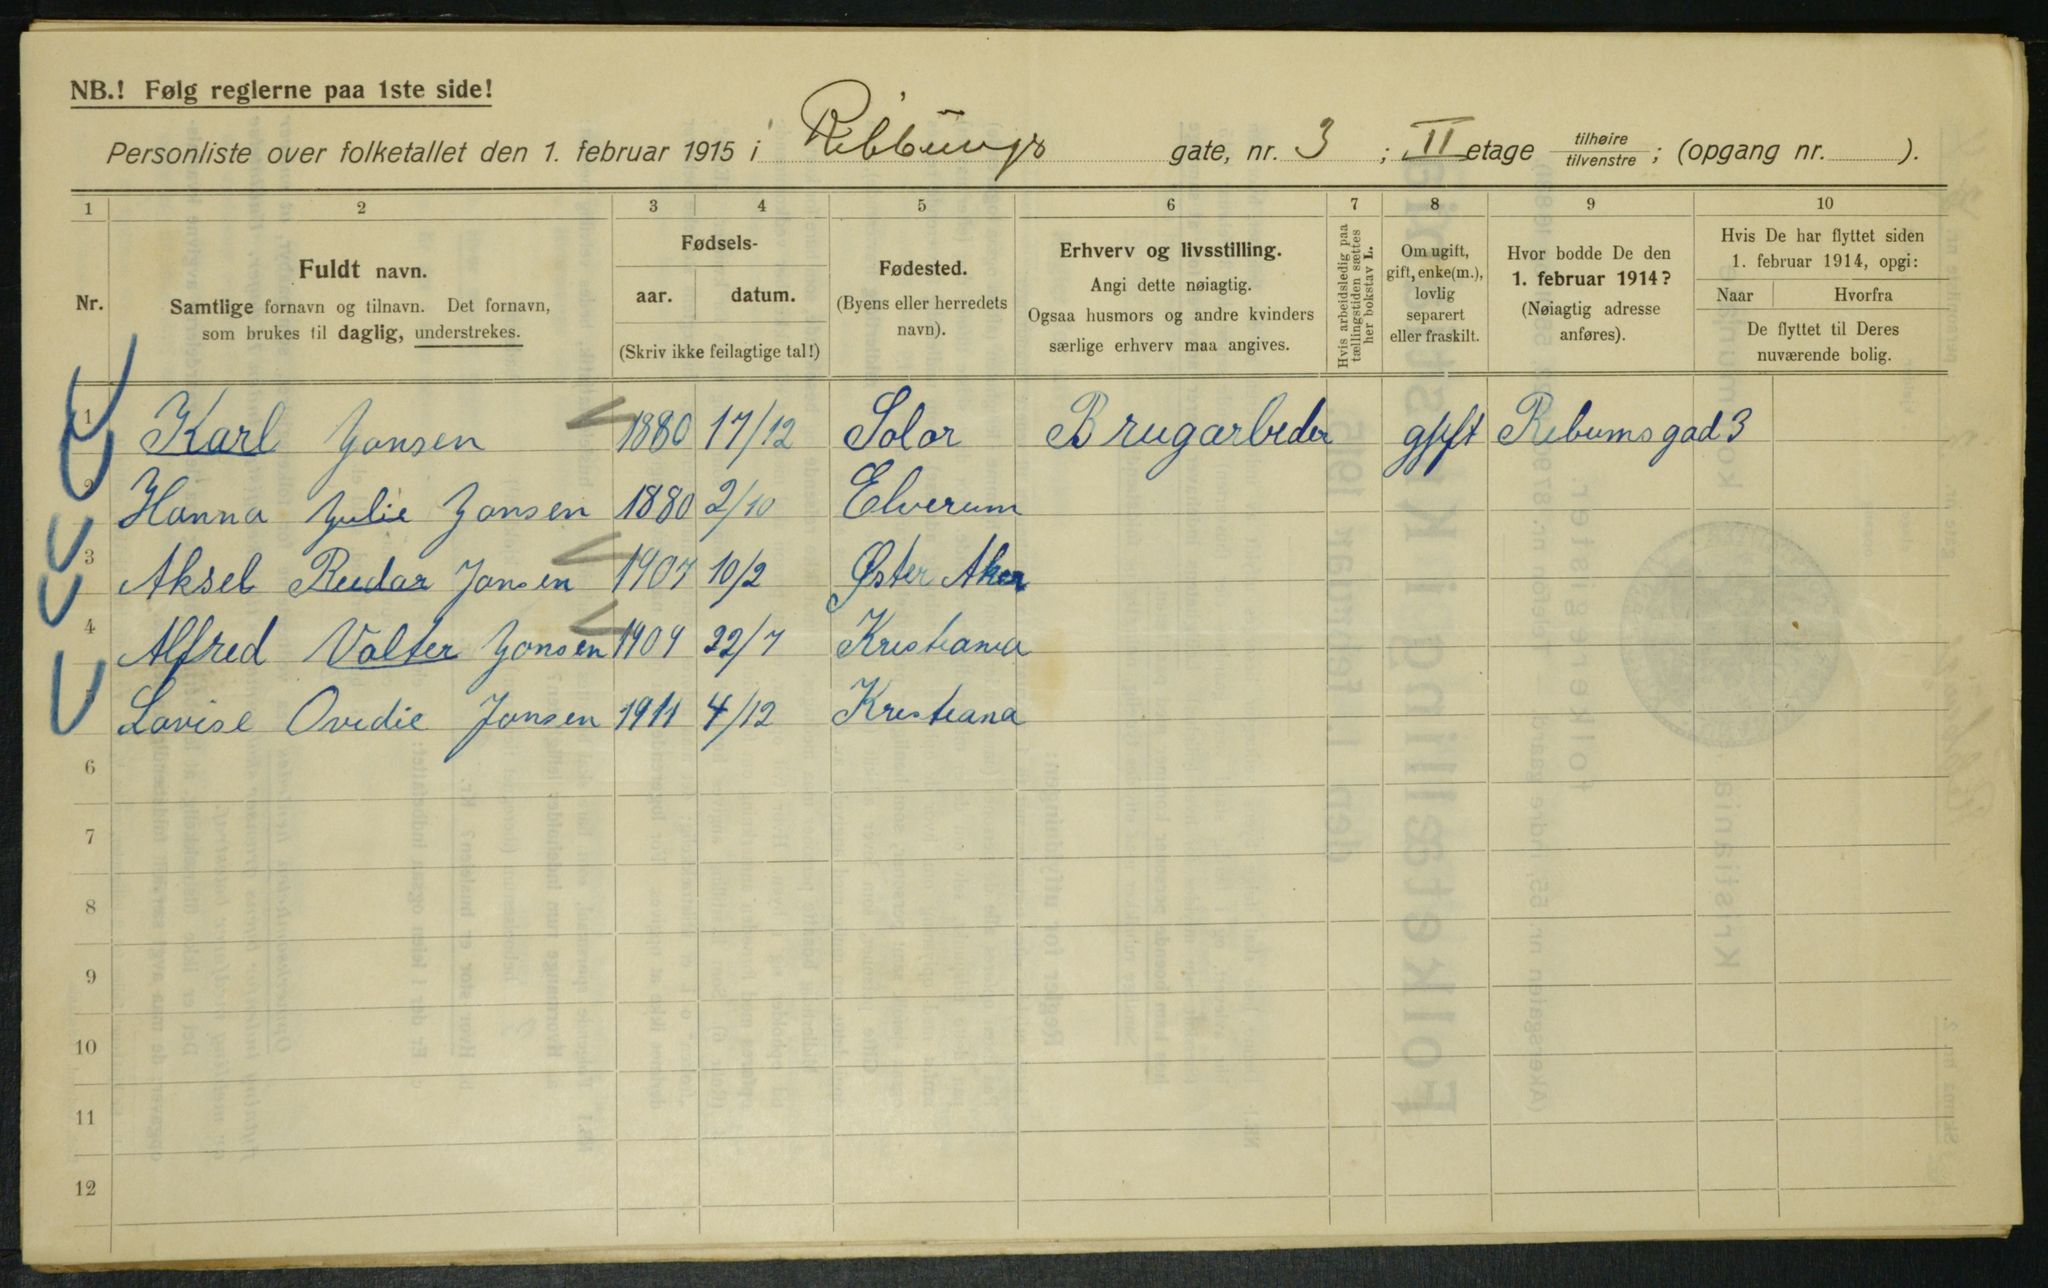 NB.! Følg reglerne paa 1ste side!
Personliste over folketallet den 1. februar 1915 i Ribbungs gate, nr. 3 ; II etage tilhøire / tilvenstre ; (opgang nr. ).
1 2 3 4 5 6 7 8 9 10
Nr.
Fuldt navn.
Samtlige fornavn og tilnavn. Det fornavn,
som brukes til daglig, understrekes.
Fødsels-
aar. datum.
(Skriv ikke feilagtige tal!)
Fødested.
(Byens eller herredets
navn).
Erhverv og livsstilling.
Angi dette nøiagtig.
Ogsaa husmors og andre kvinders
særlige erhverv maa angives.
Hvis arbeidsledig paa
tællingstiden sættes
her bokstav L.
Om ugift,
gift, enke(m.),
lovlig
separert
eller fraskilt.
Hvor bodde De den
1. februar 1914?
(Nøiagtig adresse
anføres).
Hvis De har flyttet siden
1. februar 1914, opgi:
Naar Hvorfra
De flyttet til Deres
nuværende bolig.
1 Karl Jonsen 1880 17/12 Solør Brugarbeder gift Rebums gad 3
2 Hanna Julie Jonsen 1880 2/10 Elverum
3 Aksel Reidar Jonsen 1907 10/2 Øster Aker
4 Alfred Valter Jonsen 1909 22/7 Kristiania
Lovise Ovidie Jonsen 1911 4/12 Kristiana
6
7
8
9
10
11
12